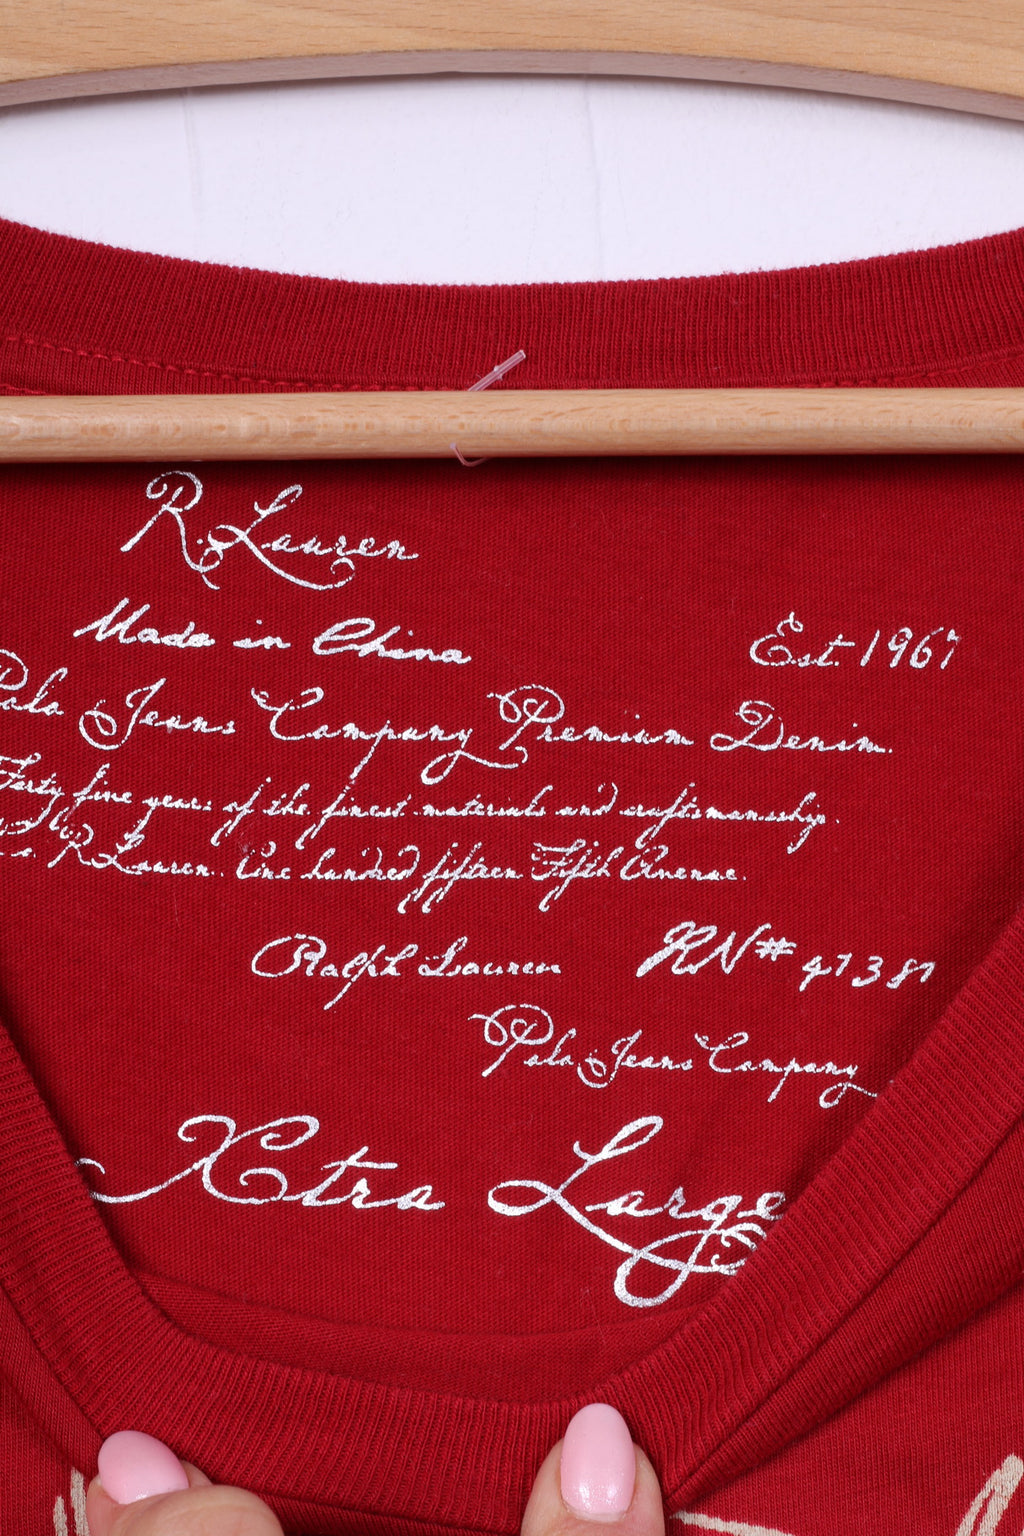 R. Lauren
Made in China Est. 1967
Polo Jeans Company Premium Denim.
Forty five years of the finest materials and craftsmanship.
R Lauren. One hundred fifteen Fifth Avenue.
Ralph Lauren RN# 47381
Polo Jeans Company
Xtra Large